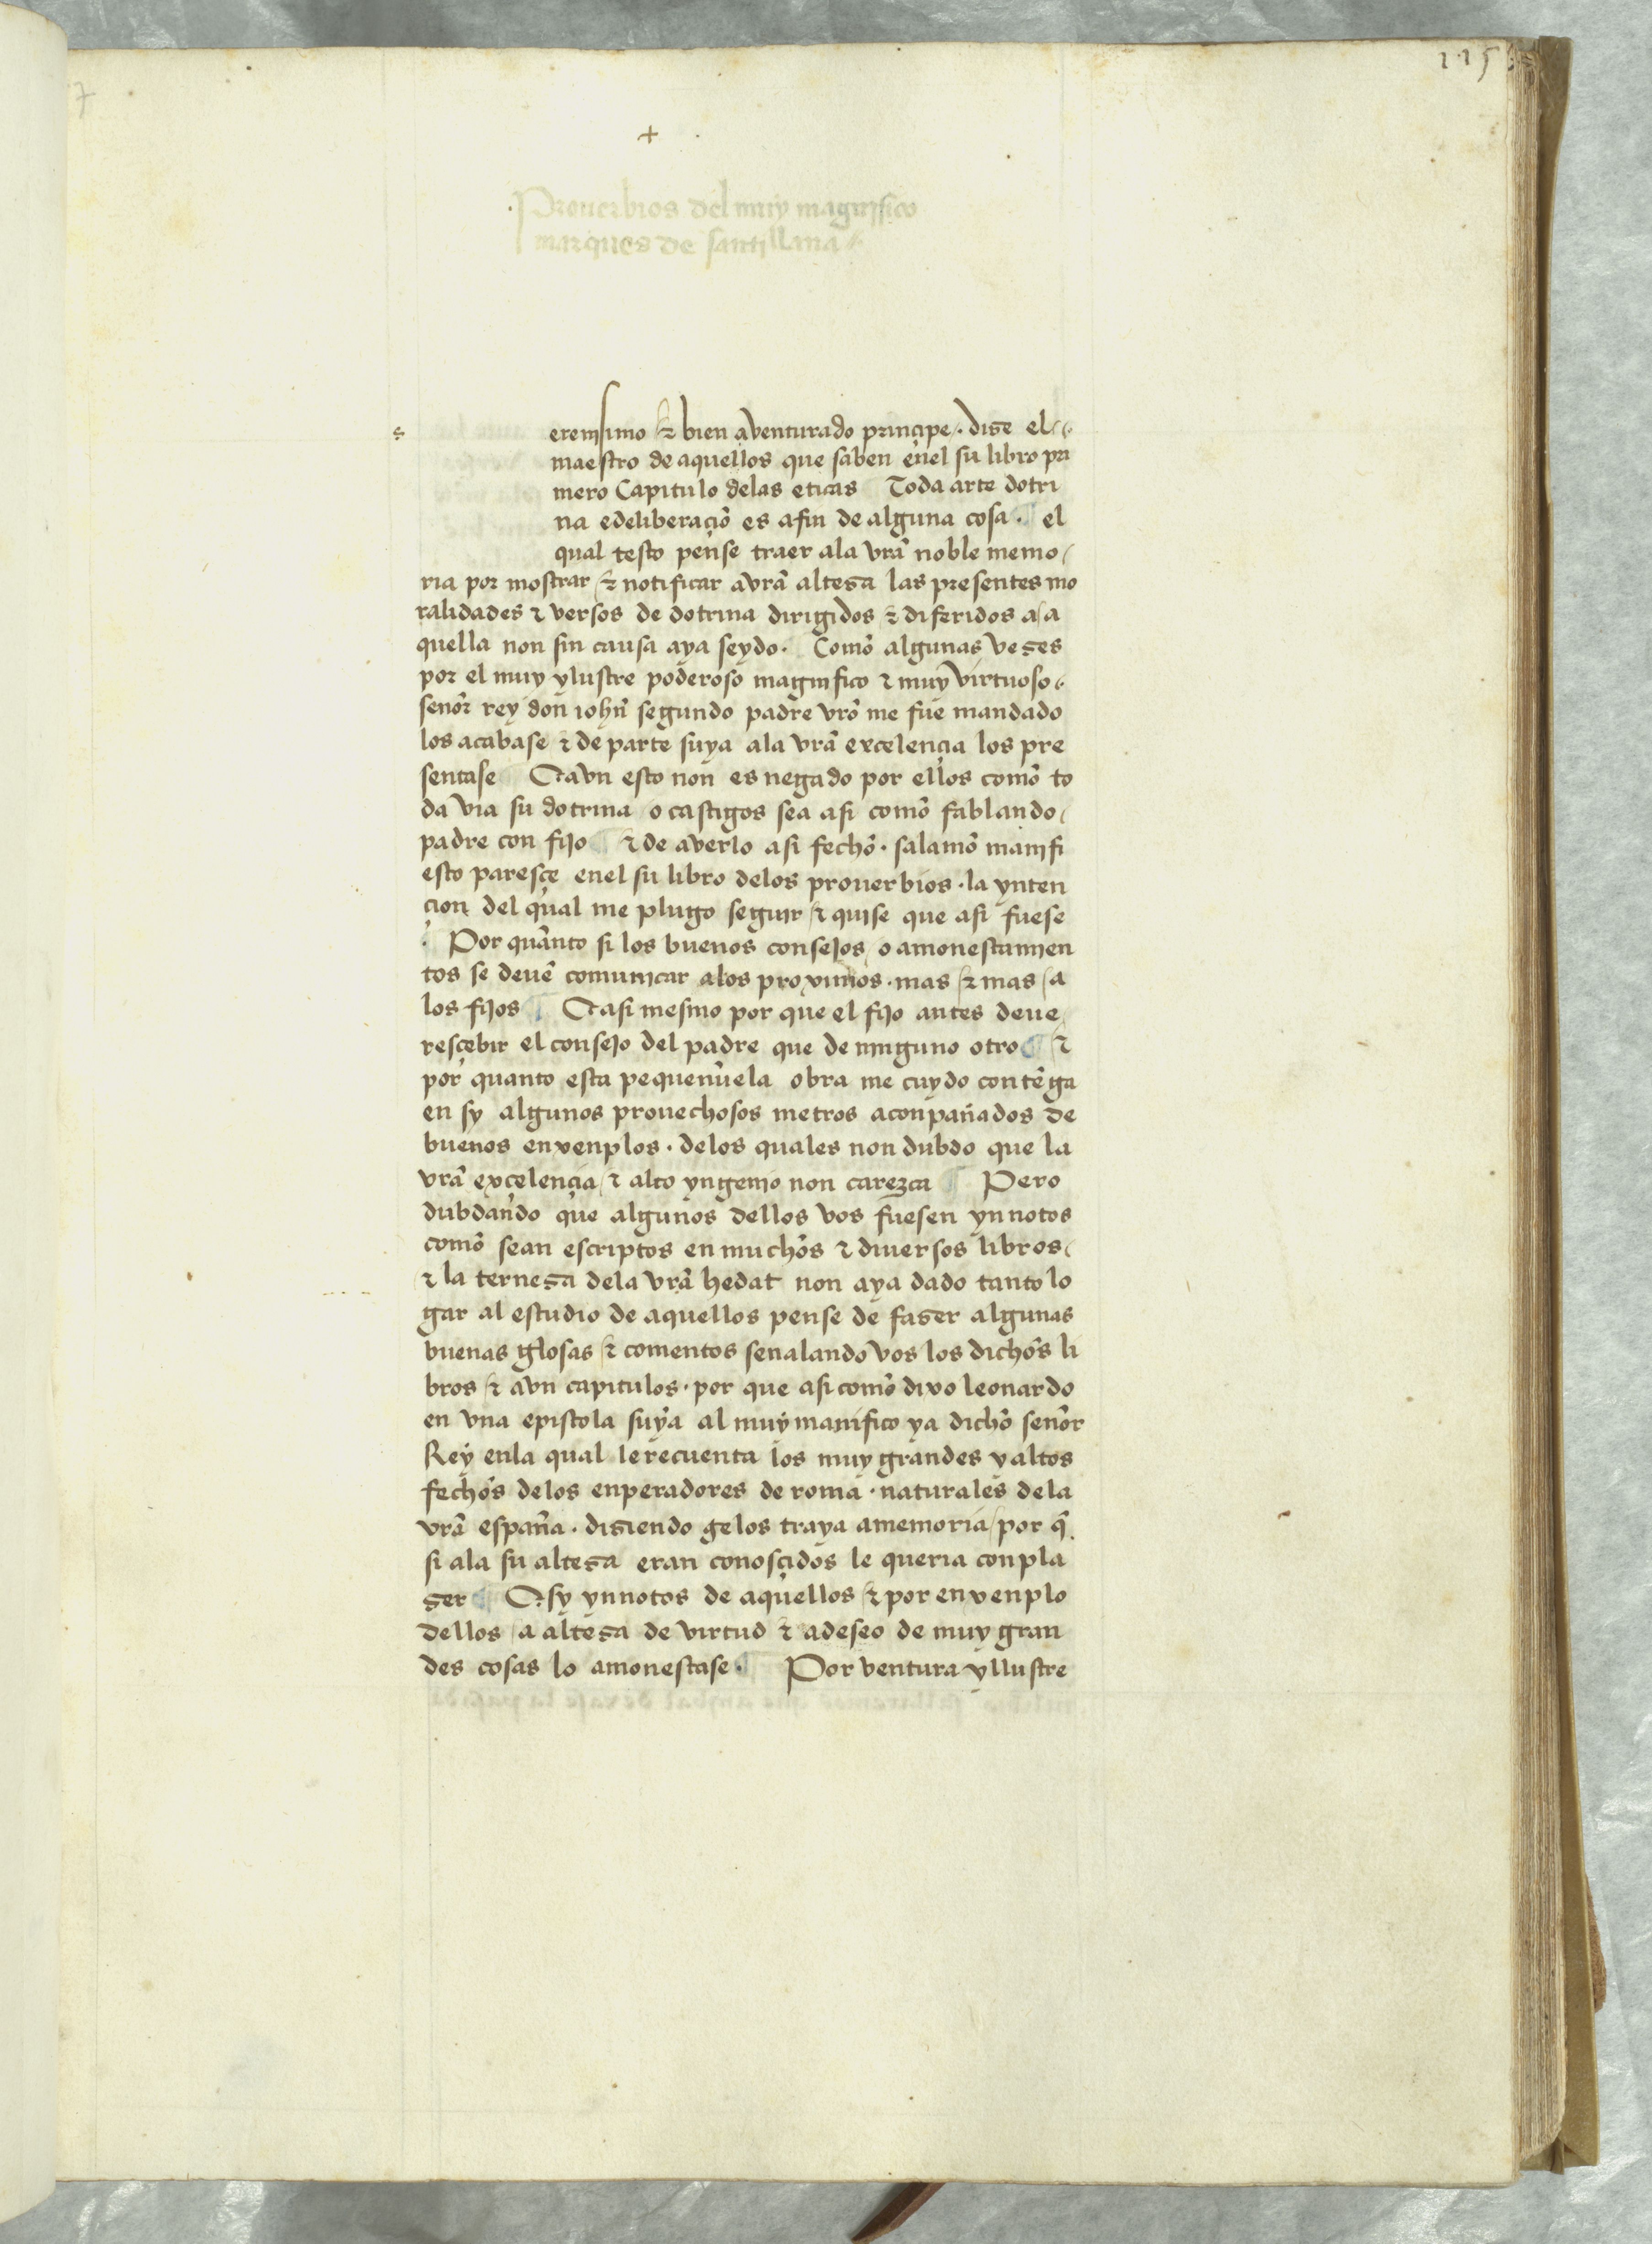 115
+
Prouerbios del muy magnifico
marques de santillana
s
erenisimo & bien aventurado principe · dise el
maestro de aquellos que saben enel su libro pri
mero Capitulo delas eticas Toda arte dotri
na edeliberaçiõ es afin de alguna cosa · el
qual testo pense traer ala vrã noble memo
ria por mostrar & notificar avrã altesa las presentes mo
ralidades & versos de dotrina dirigidos & diferidos a a
quella non sin causa aya seydo · Comõ algunas veses
por el muy ylustre poderoso magnifico & muy virtuoso
señor rey don iohñ segundo padre vrõ me fue mandado
los acabase & de parte suya ala vrã exçelençia los pre
sentase E avn esto non es negado por ellos comõ to
da via su dotrina o castigos sea asi comõ fablando
padre con fijo & de averlo asi fechõ · salamõ manifi
esto paresçe enel su libro delos prouerbios · la ynten
çion del qual me plugo seguir & quise que asi fuese
Por quãnto si los buenos consejos o amonestamien
tos se deuẽ comunicar alos proximos · mas & mas a
los fijos E asi mesmo por que el fijo antes deue
resçebir el consejo del padre que de ninguno otro &
por quanto esta pequeñuela obra me cuydo contẽga
en sy algunos prouechosos metros aconpañados de
buenos enxenplos · delos quales non dubdo que la
vrã exçelençia & alto yngenio non carezca Pero
dubdando que algunos dellos vos fuesen ynnotos
comõ sean escriptos en muchõs & diuersos libros
& la ternesa dela vrã hedat non aya dado tanto lo
gar al estudio de aquellos pense de faser algunas
buenas glosas & comentos señalando vos los dichõs li
bros & avn capitulos · por que asi comõ dixo leonardo
en vna epistola suya al muy manifico ya dichõ señor
Rey enla qual le recuenta los muy grandes y altos
fechõs delos enperadores de roma · naturales dela
vrã españa · disiendo gelos traya amemoria por q̃
si ala su altesa eran conosçidos le queria conpla
ser E sy ynnotos de aquellos & por enxenplo
dellos a altesa de virtud & adeseo de muy gran
des cosas lo amonestase · Por ventura yllustre